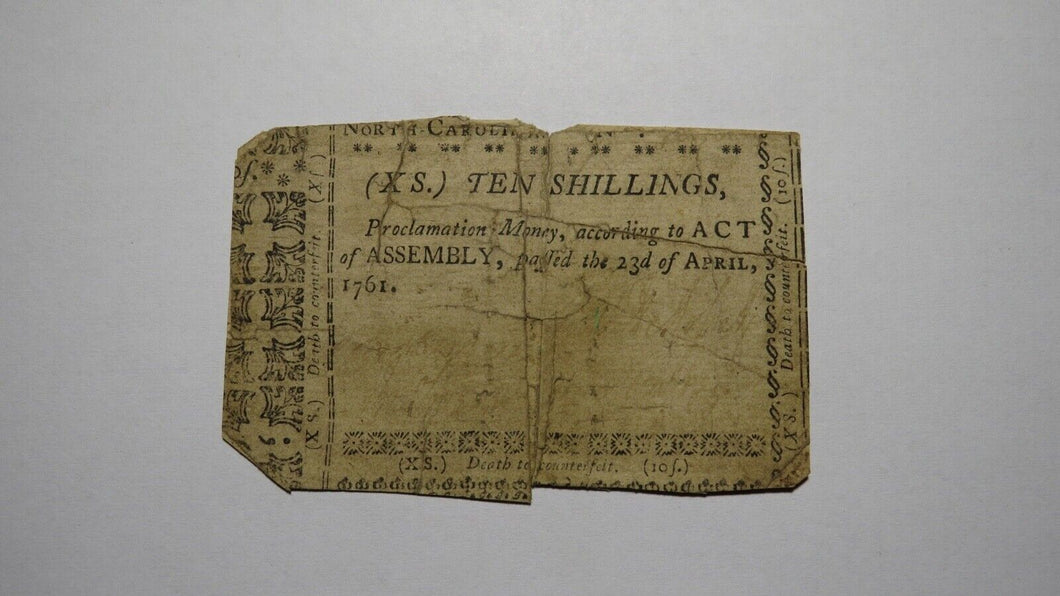 North-Caroli
(XS.) TEN SHILLINGS,
Proclamation Money, according to ACT
of ASSEMBLY, paſſed the 23d of APRIL,
1761.
(XS.) Death to counterfeit. (10ſ.)
(XS.) Death to counterfeit. (Xſ.)
(XS.) Death to counterfeit. (10ſ.)